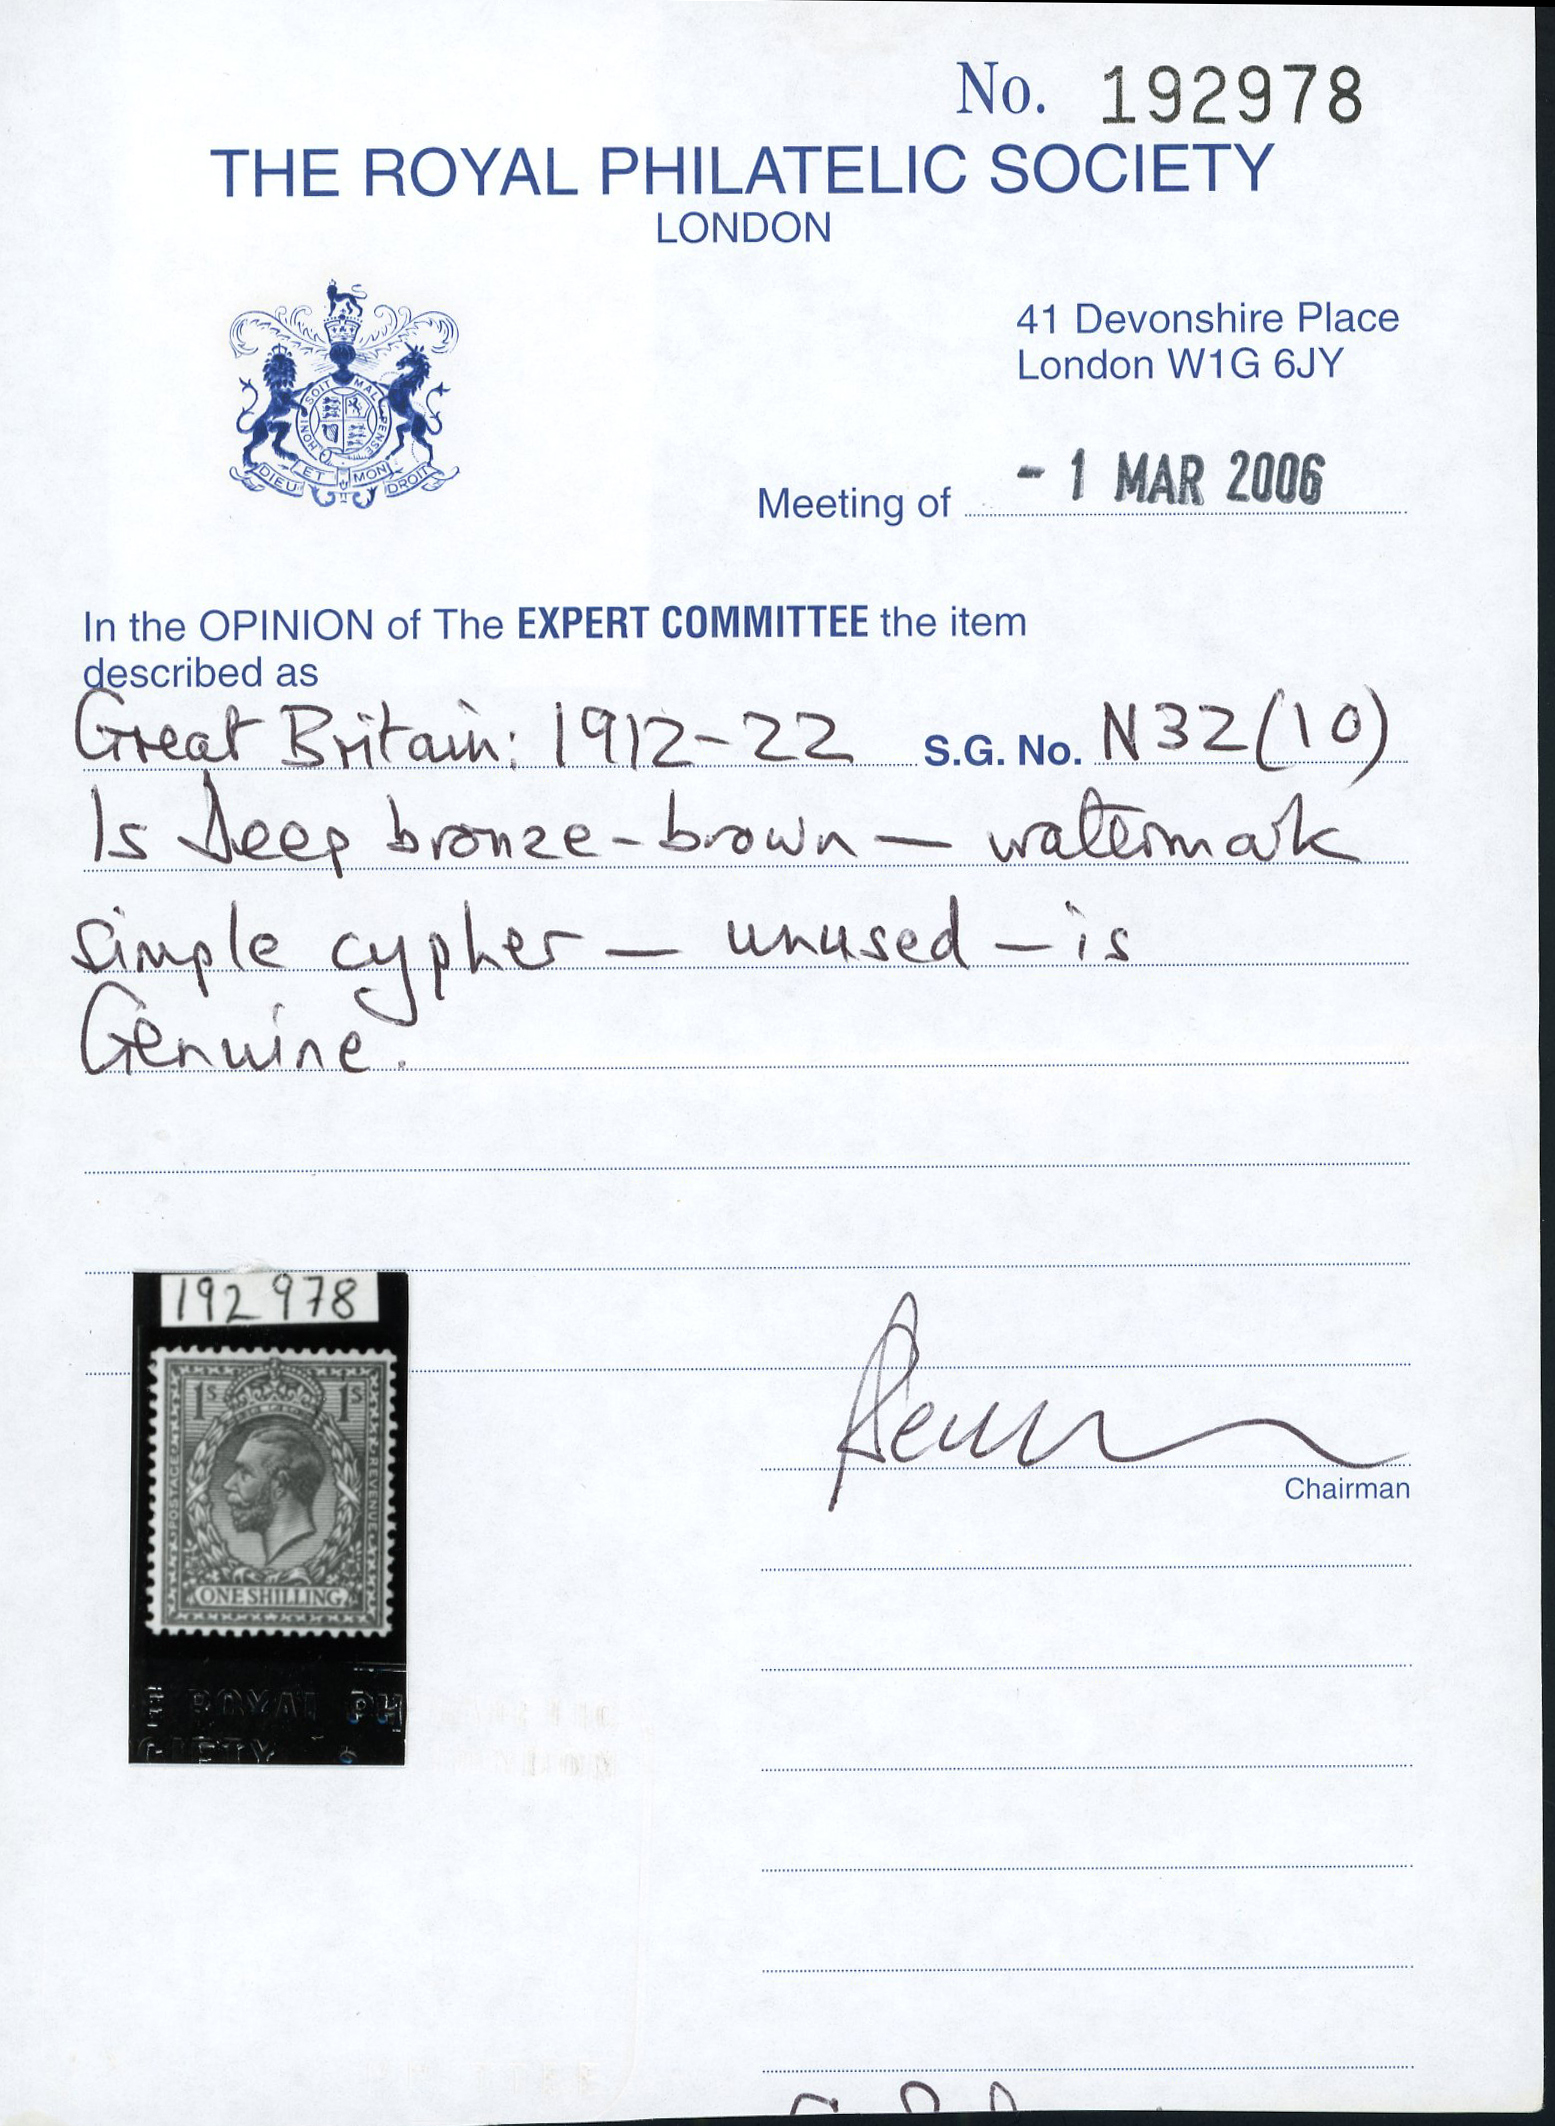 No. 192978
THE ROYAL PHILATELIC SOCIETY
LONDON
41 Devonshire Place
London W1G 6JY
SOIT MAL PENSE HONI
DIEU ET MON DROIT
Meeting of - 1 MAR 2006
In the OPINION of The EXPERT COMMITTEE the item
described as
Great Britain: 1912-22 S.G. No. N32(10)
1s Deep bronze-brown — watermark
simple cypher — unused — is
Genuine.
192978
1s 1s
POSTAGE REVENUE
ONE SHILLING
E ROYAL PH
CIETY
Chairman